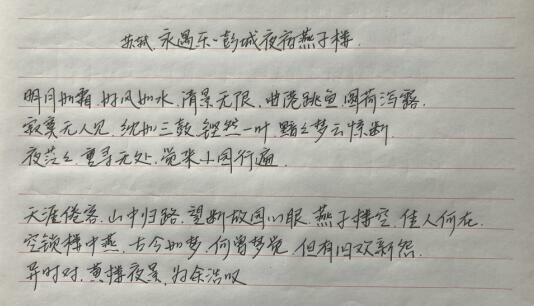 苏轼.永遇乐·彭城夜宿燕子楼.
明月如霜.好风如水.清景无限.曲港跳鱼.圆荷泻露.
寂寞无人见.紞如三鼓.铿然一叶.黯黯梦云惊断.
夜茫茫.重寻无处.觉来小园行遍.
天涯倦客.山中归路.望断故园心眼.燕子楼空.佳人何在.
空锁楼中燕.古今如梦.何曾梦觉.但有旧欢新怨.
异时对.黄楼夜景.为余浩叹